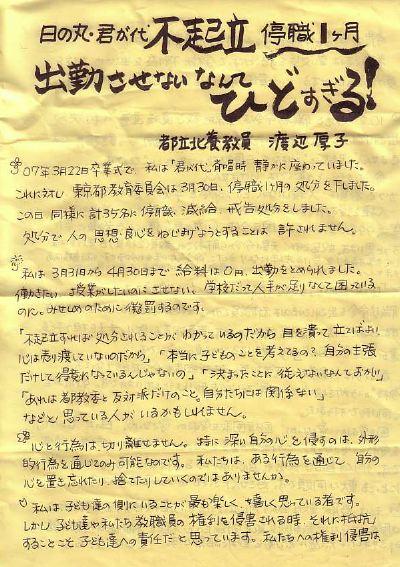 日の丸・君が代 不起立 停職1ヶ月
出勤させないなんて
ひどすぎる!
都立北養教員 渡辺厚子
07年3月22日卒業式で、私は「君が代」斉唱時 静かに座っていました。
これに対し 東京都教育委員会は3月30日、停職1ヶ月の処分を下しました。
この日 同様に計35名に停職、減給、戒告処分をしました。
処分で人の思想・良心をねじまげようとすることは 許されません。
私は3月31日から4月30日まで 給料は0円、出勤をとめられました。
働きたい、授業がしたいのにさせない。学校だって人手が足りなくて困っている
のに、みせしめのために懲罰するのです。
「不起立すれば処分されることが わかっているのだから 目を瀆って立てばよい
心は売り渡していないのだから」「本当に子どものことを考えてるの?自分の主張
だけして得意になっているんじゃないの」「決まったことに従えないなんておかしい」
「あれは都教委と反対派だけのこと。自分たちには関係ない」
などと思っている人がいるかもしれません。
心と行為は切り離せません。特に深い自分の心を侵すのは、外形
的行為を通じてのみ可能なのです。私たちは、ある行為を通じて、自分の
心を置き忘れたり、捨てたりしていくのではありませんか。
私は子ども達の側にいることが最も楽しく、嬉しく思っている者です。
しかし子ども達や私たち教職員の権利を侵害される時、それに抵抗
することこそ、子ども達への責任だと思っています。私たちへの権利侵害は